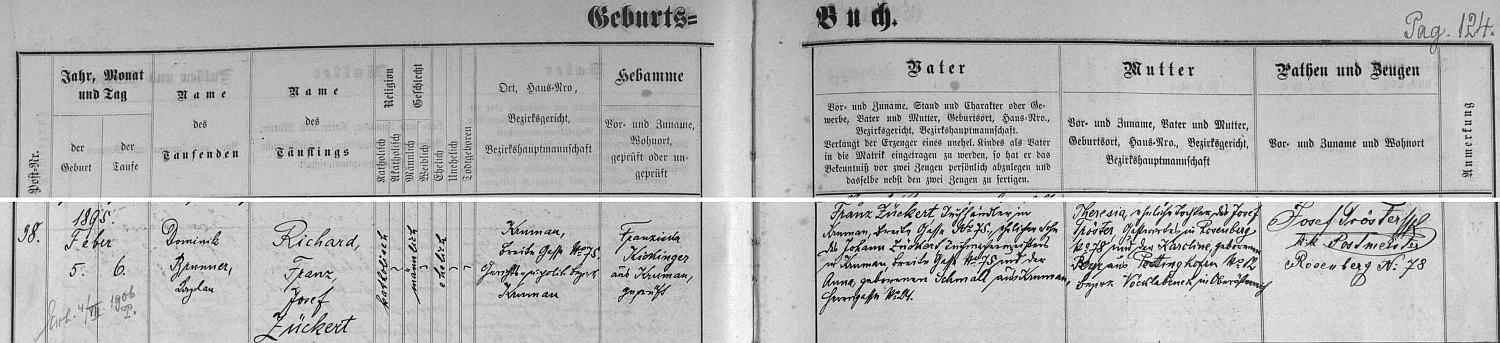 Geburts=
Buch.
Pag. 124.
Post-Nr.
Jahr, Monat
und Tag
der
Geburt
der
Taufe
Name
des
Taufenden
Name
des
Täuflings
Religion
Katholisch
Akatholisch
Geschlecht
Männlich
Weiblich
Ehelich
Unehelich
Todtgeboren
Ort, Haus-Nro,
Bezirksgericht,
Bezirkshauptmannschaft
Hebamme
Vor- und Zuname,
Wohnort,
geprüft oder un-
geprüft
Vater
Vor- und Zuname, Stand und Charakter oder Ge-
werbe, Vater und Mutter, Geburtsort, Haus-Nro.,
Bezirksgericht, Bezirkshauptmannschaft.
Verlangt der Erzeuger eines unehel. Kindes als Vater
in die Matrik eingetragen zu werden, so hat er das
Bekenntniß vor zwei Zeugen persönlich abzulegen und
dasselbe nebst den zwei Zeugen zu fertigen.
Mutter
Vor- und Zuname, Vater und Mutter,
Geburtsort, Haus-Nro., Bezirksgericht,
Bezirkshauptmannschaft
Pathen und Zeugen
Vor- und Zuname und Wohnort
Anmerkung
38.
1895.
Feber
5. 6.
1906
Dominik
Brunner,
Kaplan
Richard,
Franz
Josef
Zückert
katholisch
männlich
ehelich
Krumau,
breite Gasse No 75
Gerichts- u. polit. Bezirk
Krumau
Franziska
aus Krumau,
geprüft
Franz Zückert Tuchhändler in
Krumau, breite Gasse No. 75, ehelicher Sohn
des Johann Zückert Tuchmachermeisters
in Krumau, breite Gasse No 75 und der
Anna, geborenen Schmall aus Krumau,
Herrengasse No 24.
Theresia, eheliche Tochter des Josef
Tröster Gastwirtes in Rosenberg
No 78 und der Karoline, geborenen
aus No 12
Bezirk Vöcklabruck in Oberösterreich
Josef Tröster
k.k. Postmeister
Rosenberg No: 78